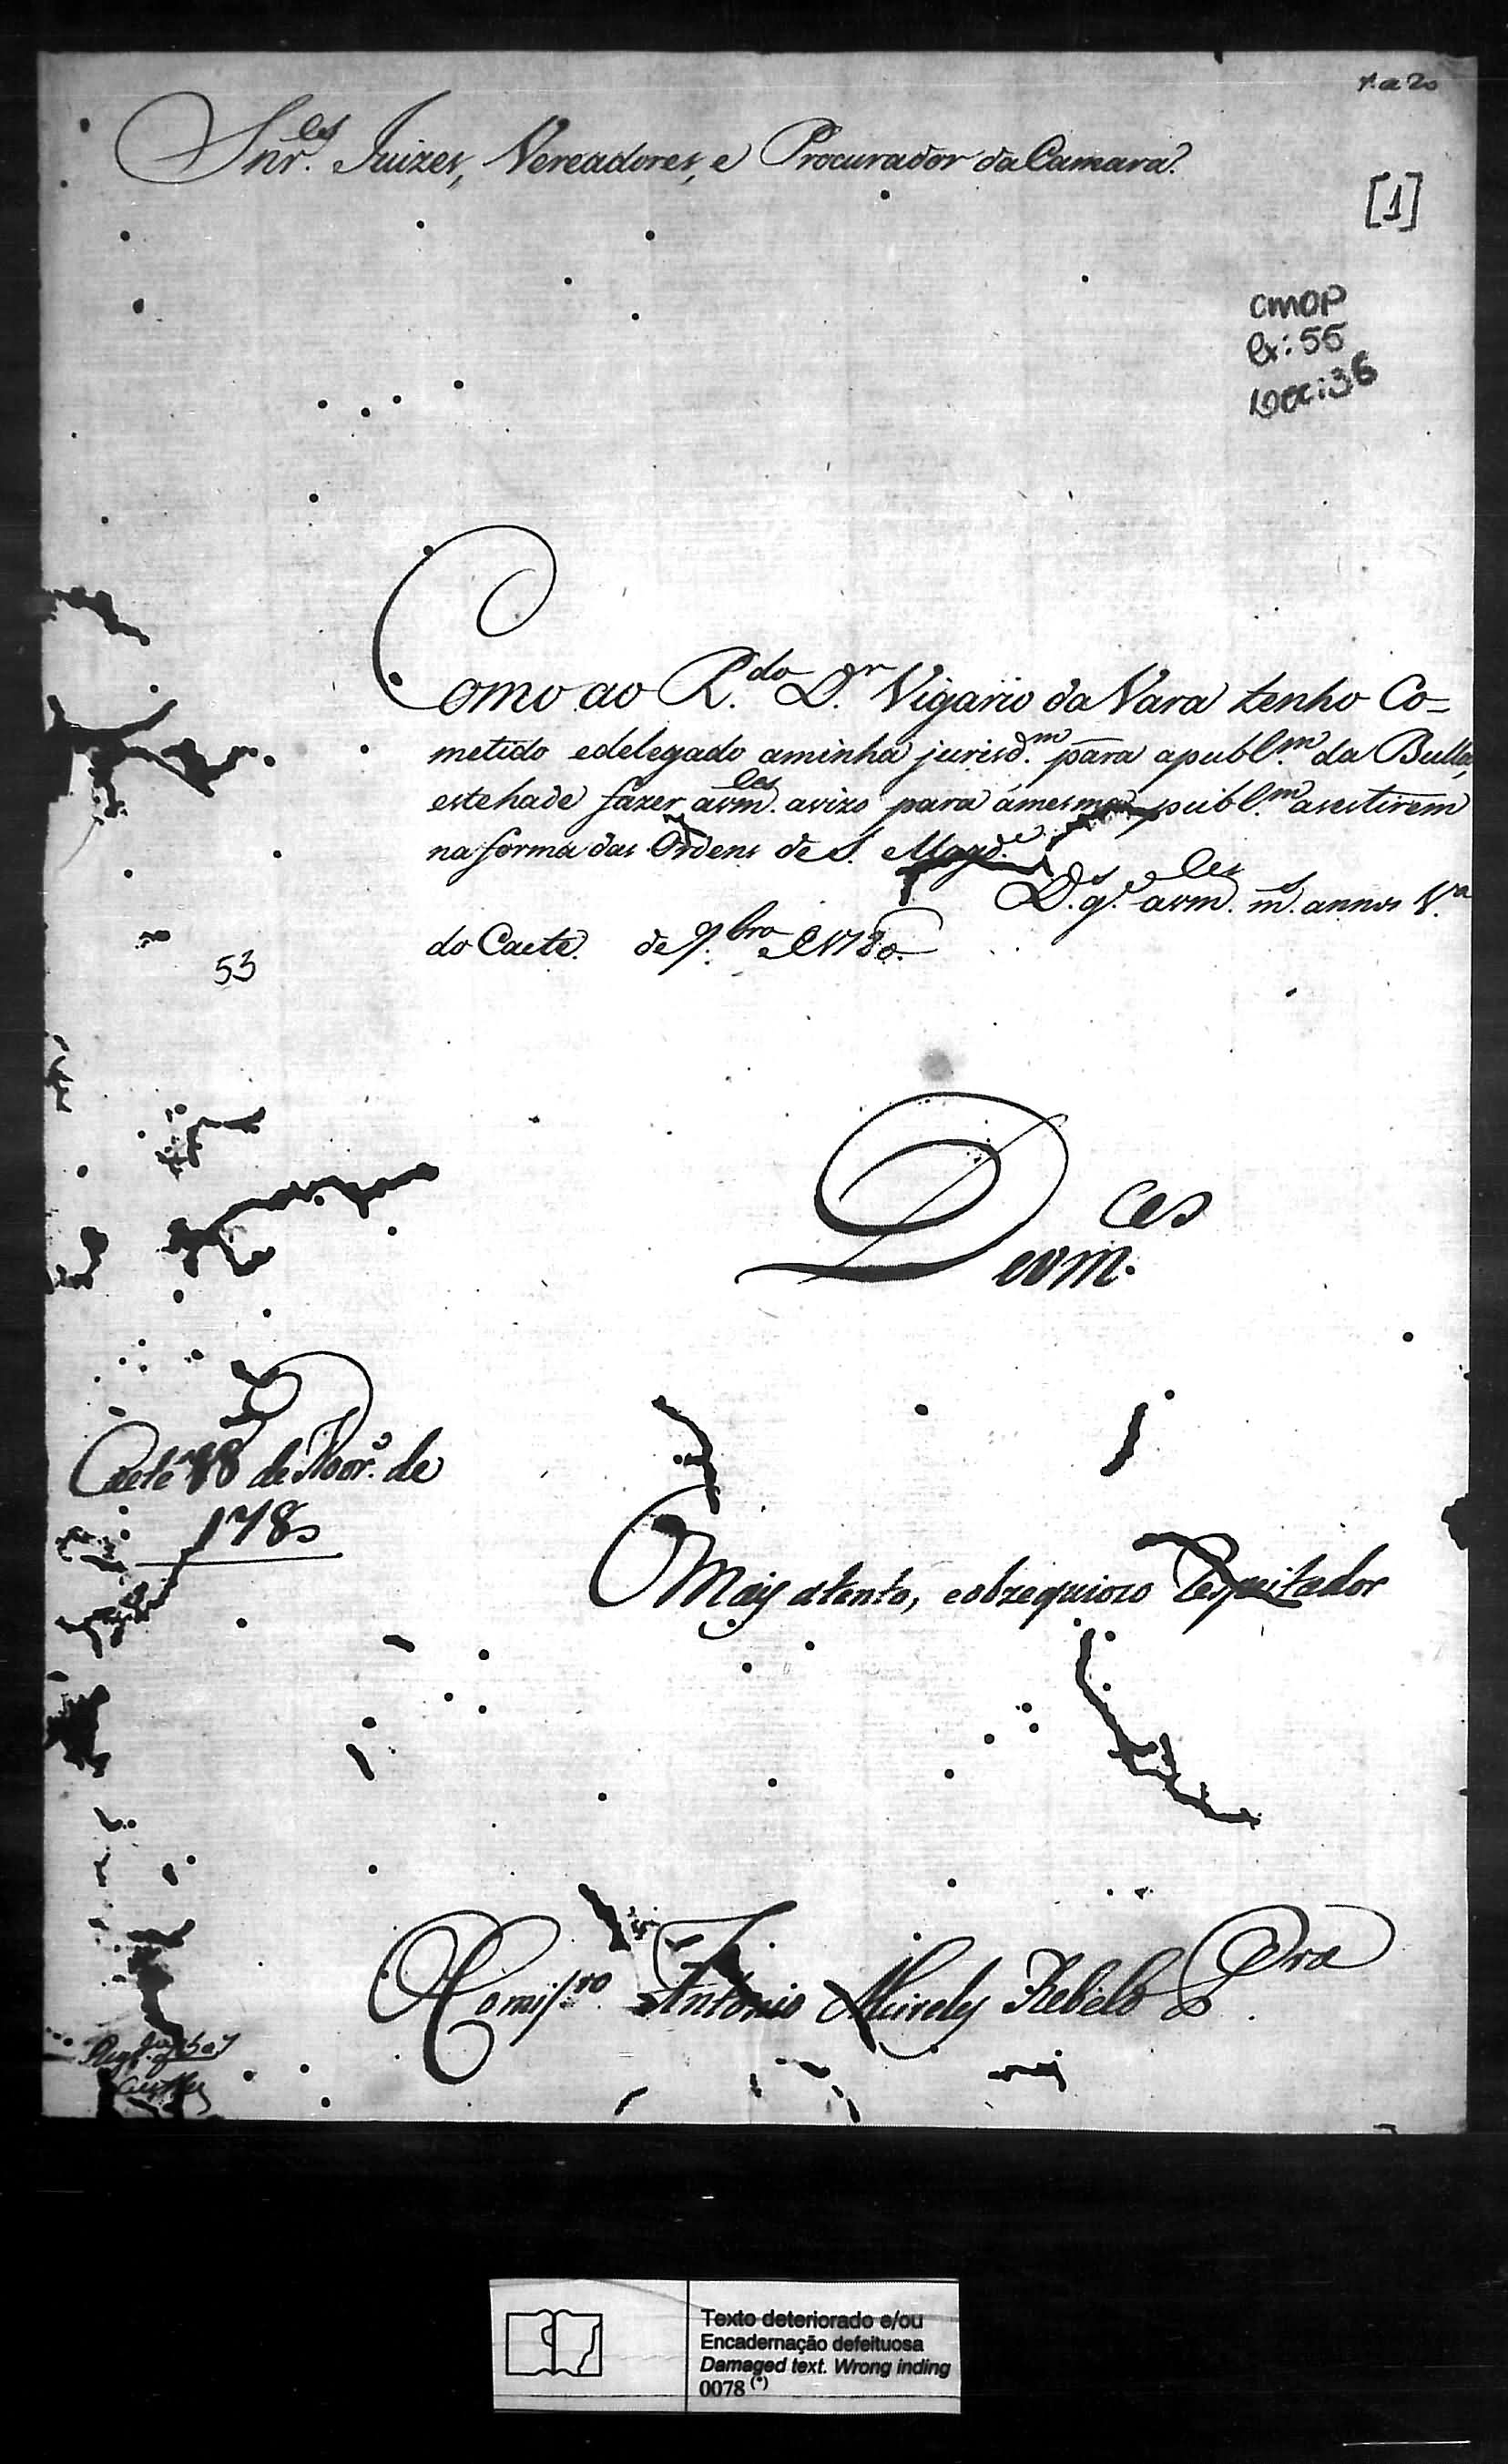 1. a 20
Snr.es Juizes, Vereadores, e Procurador da Camara.
[1]
CMOP
Cx: 55
Doc: 36
Como ao R.do D.r Vigario da Vara tenho Co=
metido edelegado aminha jurisd.m para apubl.m da Bulla,
este hade fazer avm.ces avizo para ámesma publ.m asestirem
na forma das Ordens de S. Magd.e
D.s g.e avm.ces m.s annos V.a
do Caete. de 9.bro e 1780.
53
Devm.ces
Caeté 18 de Novr.o de
1780
Mais atento, eobzequiozo Respeitador
O Comiss.ro Antonio Meireles Rebelo Pr.a
Texto deteriorado e/ou
Encadernação defeituosa
Damaged text. Wrong inding
0078 (*)